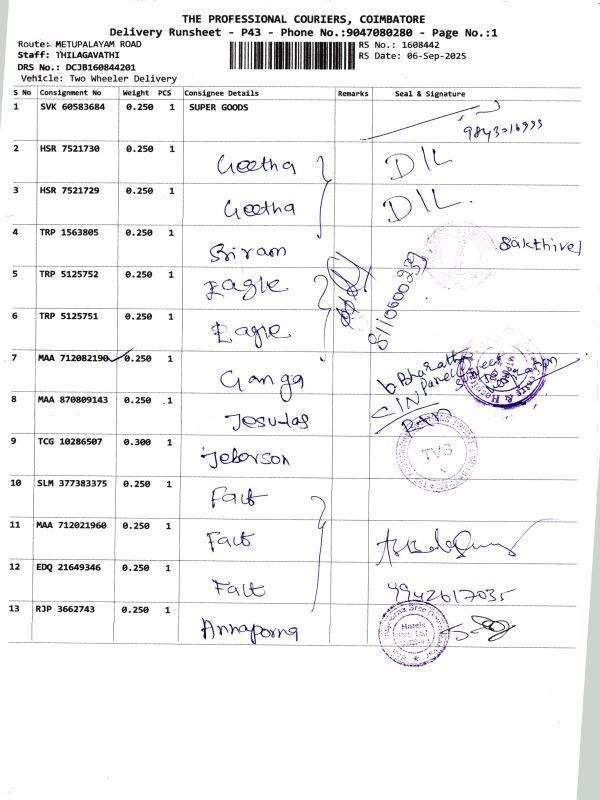 THE PROFESSIONAL COURIERS, COIMBATORE
Delivery Runsheet - P43 - Phone No.:9047080280 - Page No.:1
Route: METUPALAYAM ROAD
RS No.: 1608442
Staff: THILAGAVATHI
RS Date: 06-Sep-2025
DRS No.: DCJB160844201
Vehicle: Two Wheeler Delivery
S No Consignment No Weight PCS Consignee Details Remarks Seal & Signature
1 SVK 60583684 0.250 1 SUPER GOODS
2 HSR 7521730 0.250 1 Geetha D/L
3 HSR 7521729 0.250 1 Geetha D/L.
4 TRP 1563805 0.250 1 Sriram Sakthivel
5 TRP 5125752 0.250 1 Eagle 8110600239
6 TRP 5125751 0.250 1 Eagle
7 MAA 712082190 0.250 1 Ganga
8 MAA 870809143 0.250 1 Jesudas
9 TCG 10286507 0.300 1 Jeborson TVS
10 SLM 377383375 0.250 1 Fact
11 MAA 712021960 0.250 1 Fact
12 EDQ 21649346 0.250 1 Fact 9942617035
13 RJP 3662743 0.250 1 Annaporna Hotels